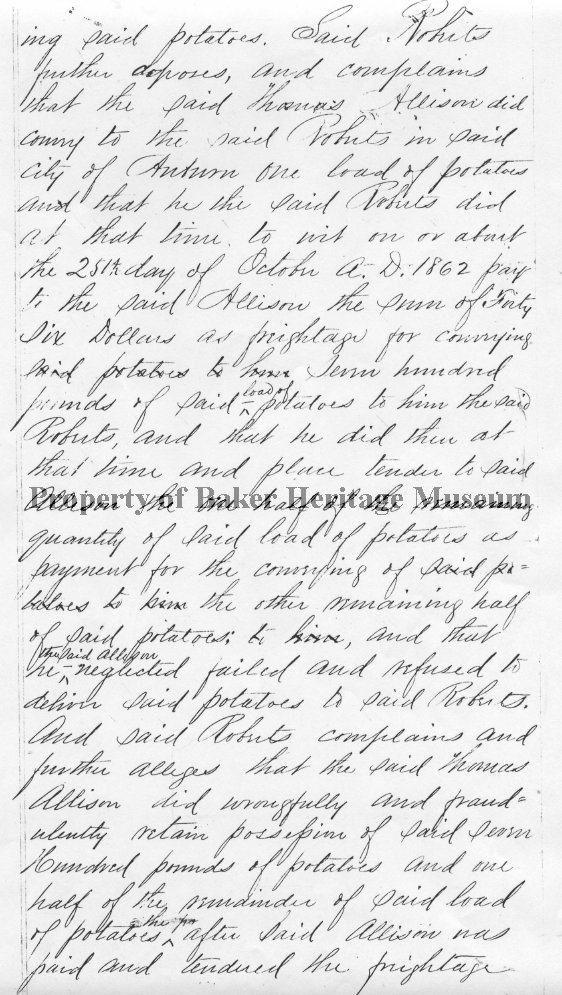 ing said potatoes. Said Roberts
further deposes, and complains
that the said Thomas Allison did
convey to the said Roberts in said
city of Auburn one load of potatoes
and that he the said Roberts did
at that time to wit on or about
the 25th day of October A. D. 1862 pay
to the said Allison the sum of Forty
six Dollars as freightage for conveying
said potatoes to him Seven hundred
pounds of said load of potatoes to him the said
Roberts, and that he did then at
that time and place tender to said
Allison the one half of the remaining
Property of Baker Heritage Museum
quantity of said load of potatoes as
payment for the conveying of said po=
tatoes to him the other remaining half
of said potatoes; to him, and that
he the said Allison neglected failed and refused to
deliver said potatoes to said Roberts.
And said Roberts complains and
further alleges that the said Thomas
Allison did wrongfully and fraud=
ulently retain possession of said seven
Hundred pounds of potatoes and one
half of the remainder of said load
of potatoes after said Allison was
paid and tendered the freightage